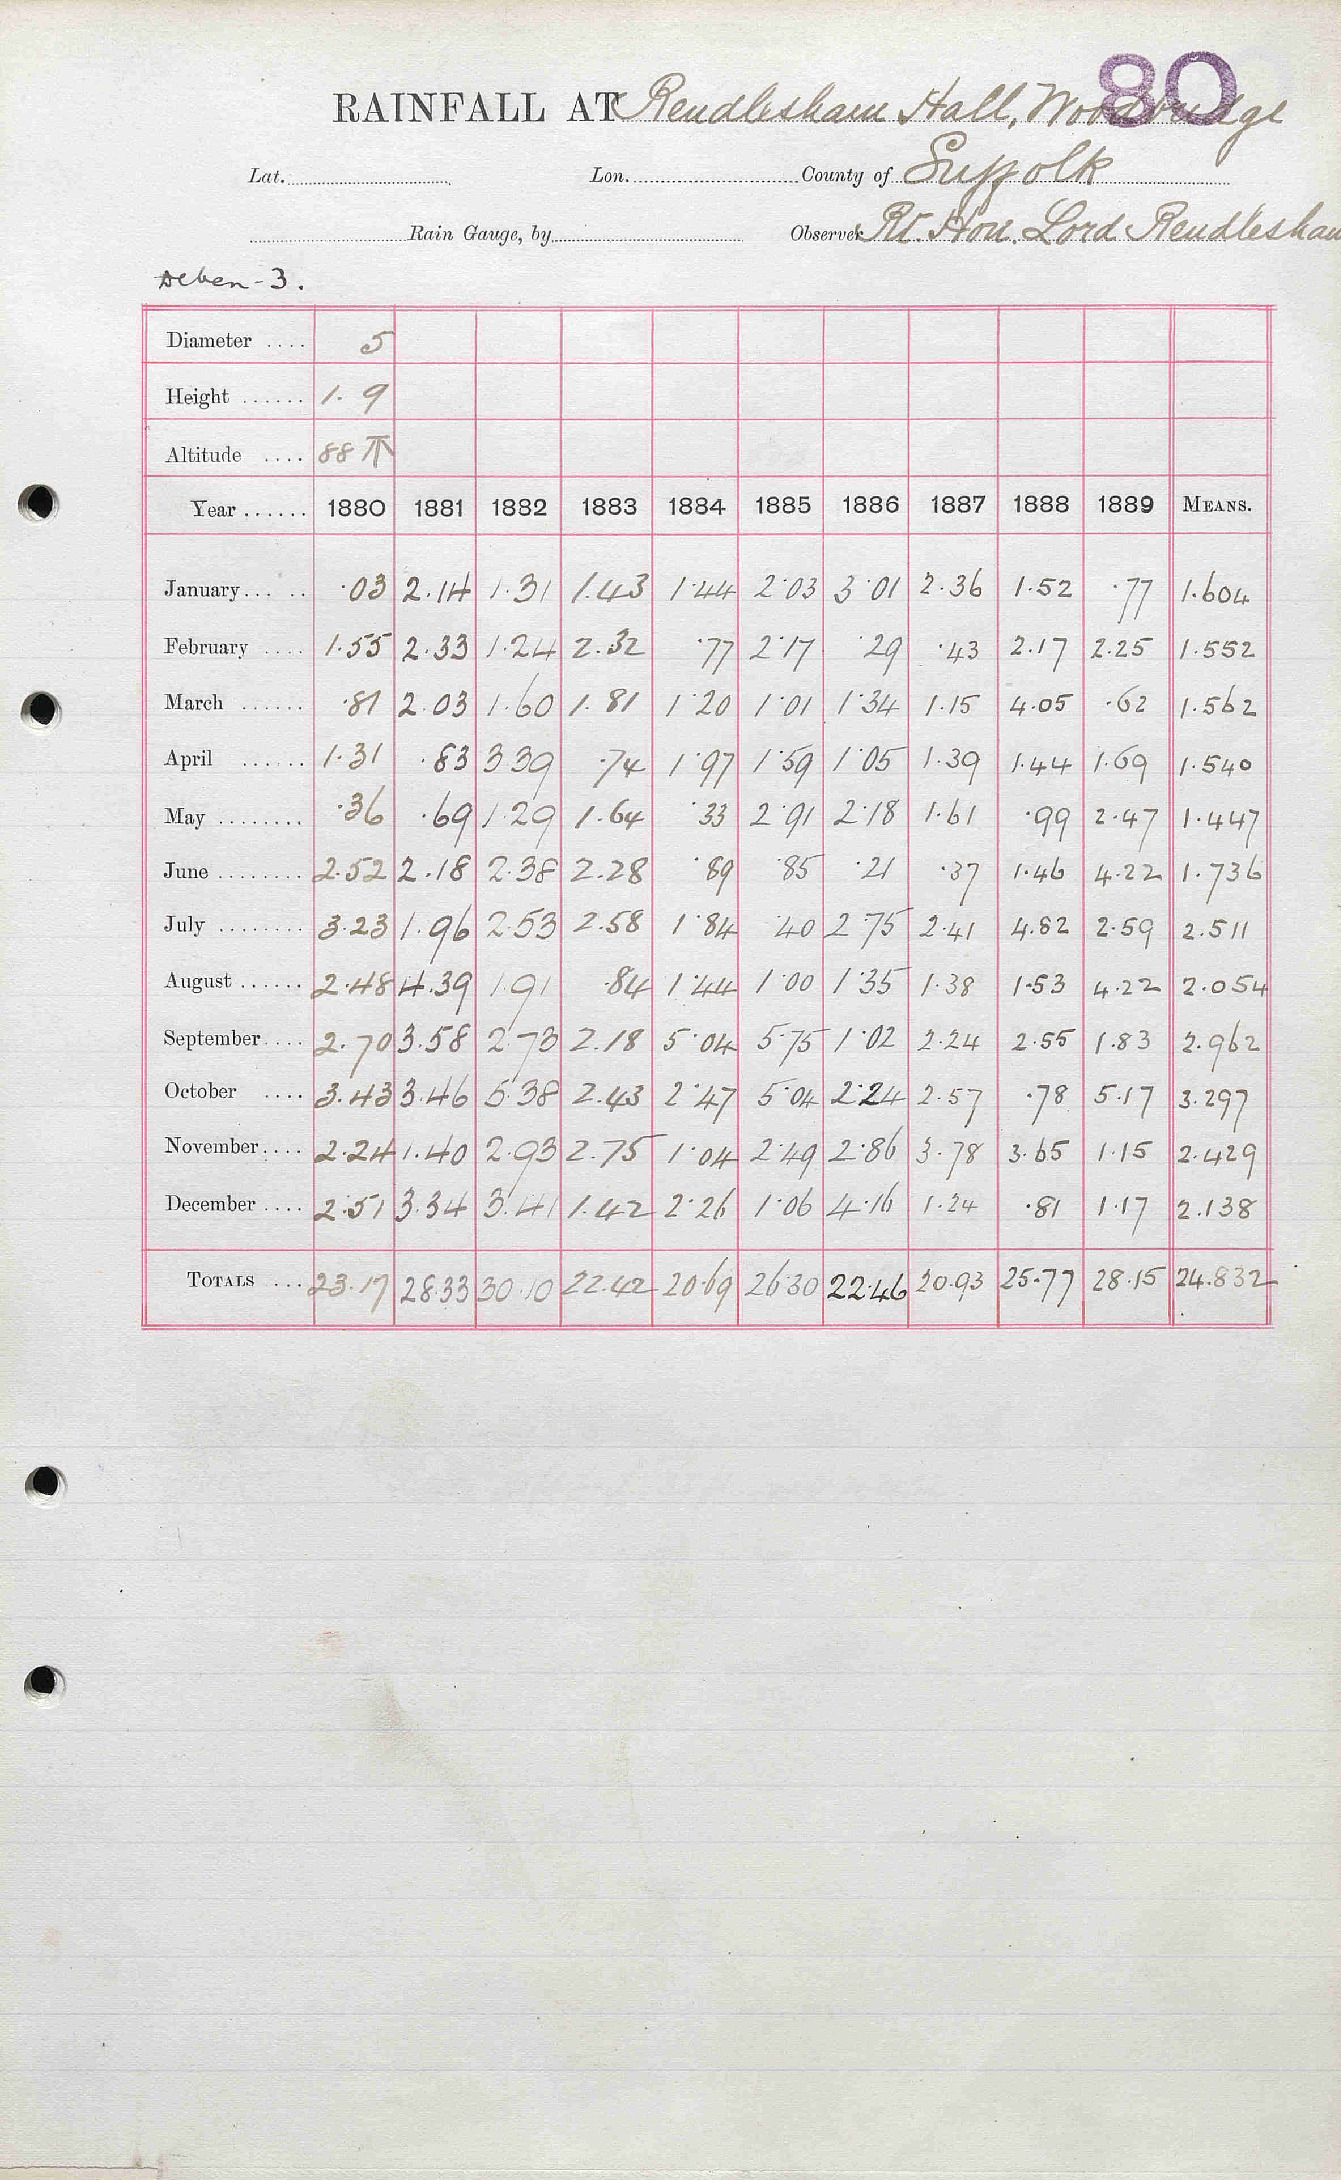 80
RAINFALL AT Rendlesham Hall, Woodbridge
Lat. Lon. County of Suffolk
Rain Gauge, by Observer Rt. Hon. Lord Rendlesham
Deben - 3.
Diameter .... 5
Height ...... 1. 9
Altitude .... 88
Year ...... 1880 1881 1882 1883 1884 1885 1886 1887 1888 1889 MEANS.
January... .. ·03 2.14 1.31 1.43 1·44 2·03 3·01 2.36 1.52 ·77 1.604
February .... 1.55 2.33 1.24 2.32 ·77 2·17 ·29 ·43 2.17 2.25 1.552
March ...... ·81 2.03 1.60 1.81 1·20 1·01 1·34 1.15 4.05 .62 1.562
April ...... 1.31 .83 3.39 .74 1·97 1·59 1·05 1.39 1.44 1.69 1.540
May ........ ·36 .69 1.29 1.64 ·33 2·91 2·18 1.61 .99 2.47 1.447
June ........ 2.52 2.18 2.38 2.28 ·89 ·85 ·21 .37 1.46 4.22 1.736
July ........ 3.23 1.96 2.53 2.58 1·84 ·40 2·75 2.41 4.82 2.59 2.511
August ...... 2.48 4.39 1.91 .84 1·44 1·00 1·35 1.38 1.53 4.22 2.054
September.... 2.70 3.58 2.73 2.18 5·04 5·75 1·02 2.24 2.55 1.83 2.962
October .... 3.43 3.46 5.38 2.43 2·47 5·04 2·24 2.57 .78 5.17 3.297
November.... 2.24 1.40 2.93 2.75 1·04 2·49 2·86 3.78 3.65 1.15 2.429
December .... 2.51 3.34 3.41 1.42 2·26 1·06 4·16 1.24 .81 1.17 2.138
TOTALS ... 23.17 28.33 30.10 22.42 20·69 26·30 22.46 20.93 25.77 28.15 24.832